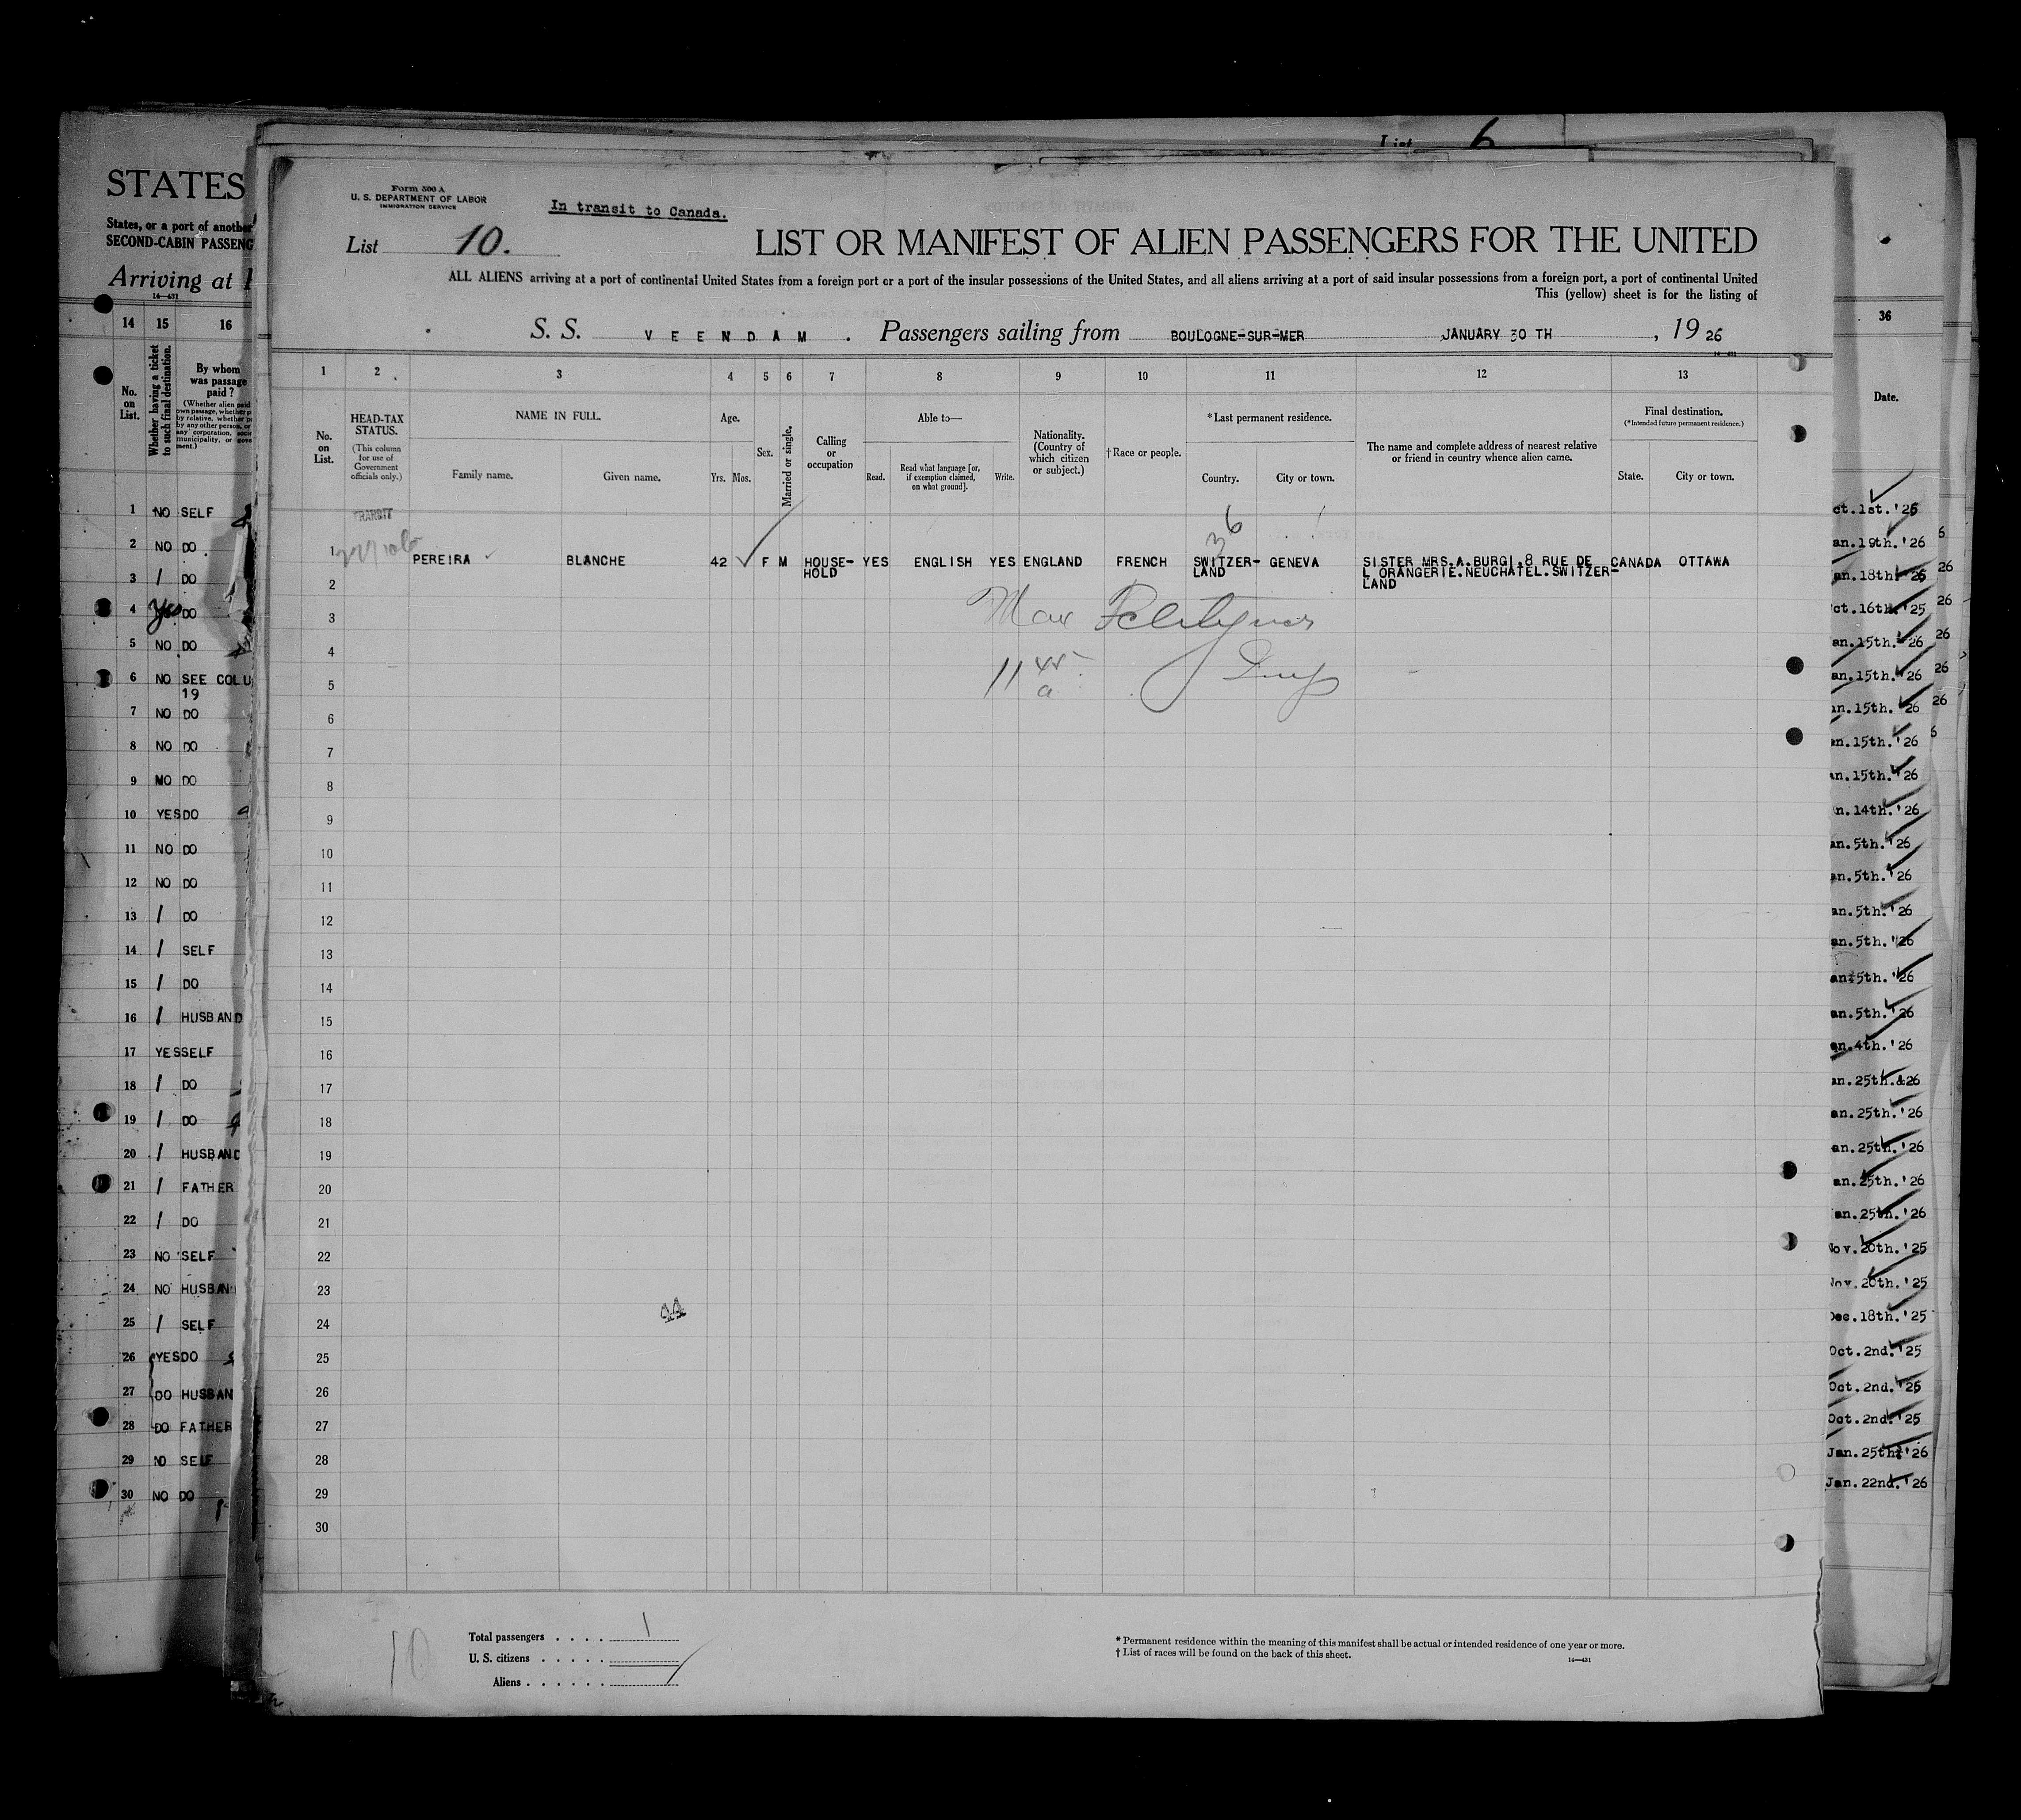 List 6
STATES
States, or a port of another
SECOND-CABIN PASSENG
Arriving at
14—431
14 15 16
No. on List.
Whether having a ticket to such final destination.
By whom was passage paid?
(Whether alien paid own passage, whether by relative, whether by any other person, or any corporation, municipality, or government.)
1 NO SELF
2 NO DO
3 / DO
4 Yes DO
5 NO DO
6 NO SEE COLU
19
7 NO DO
8 NO DO
9 NO DO
10 YES DO
11 NO DO
12 NO DO
13 / DO
14 / SELF
15 / DO
16 / HUSBAND
17 YES SELF
18 / DO
19 / DO
20 / HUSBAND
21 / FATHER
22 / DO
23 NO SELF
24 NO HUSBAN
25 / SELF
26 YES DO
27 DO HUSBAN
28 DO FATHER
29 NO SELF
30 NO DO
Form 500 A
U. S. DEPARTMENT OF LABOR
IMMIGRATION SERVICE
In transit to Canada.
List 10.
LIST OR MANIFEST OF ALIEN PASSENGERS FOR THE UNITED
ALL ALIENS arriving at a port of continental United States from a foreign port or a port of the insular possessions of the United States, and all aliens arriving at a port of said insular possessions from a foreign port, a port of continental United
This (yellow) sheet is for the listing of
S. S. VEENDAM. Passengers sailing from BOULOGNE-SUR-MER JANUARY 30 TH, 19 26
14—431
1 2 3 4 5 6 7 8 9 10 11 12 13
No. on List.
HEAD-TAX STATUS.
(This column for use of Government officials only.)
NAME IN FULL.
Family name. Given name.
Age.
Yrs. Mos.
Sex.
Married or single.
Calling or occupation
Able to—
Read. Read what language [or, if exemption claimed, on what ground]. Write.
Nationality. (Country of which citizen or subject.)
†Race or people.
*Last permanent residence.
Country. City or town.
The name and complete address of nearest relative or friend in country whence alien came.
Final destination.
(*Intended future permanent residence.)
State. City or town.
TRANSIT
36
1 PEREIRA BLANCHE 42 F M HOUSE-HOLD YES ENGLISH YES ENGLAND FRENCH SWITZER-LAND GENEVA SISTER MRS.A.BURGI.8 RUE DE L ORANGERIE.NEUCHATEL.SWITZER-LAND CANADA OTTAWA
2
3 Max
4
5 11 45 a Insp
6
7
8
9
10
11
12
13
14
15
16
17
18
19
20
21
22
23
24
25
26
27
28
29
30
10
Total passengers . . . . 1
U. S. citizens . . . . .
Aliens . . . . . .
* Permanent residence within the meaning of this manifest shall be actual or intended residence of one year or more.
† List of races will be found on the back of this sheet.
14—431
36
Date.
ct.1st.'25
an.19th.'26
an.18th.'26
ct.16th.'25
an.15th.'26
an.15th.'26
an.15th.'26
an.15th.'26
an.15th.'26
n.14th.'26
an.5th.'26
an.5th.'26
an.5th.'26
an.5th.'26
an.5th.'26
an.5th.'26
an.4th.'26
an.25th.&26
an.25th.'26
an.25th.'26
an.25th.'26
an.25th.'26
Nov.20th.'25
Nov.20th.'25
Dec.18th.'25
Oct.2nd.'25
Oct.2nd.'25
Oct.2nd.'25
Jan.25th.'26
Jan.22nd.'26
6
26
26
26
26
26
6